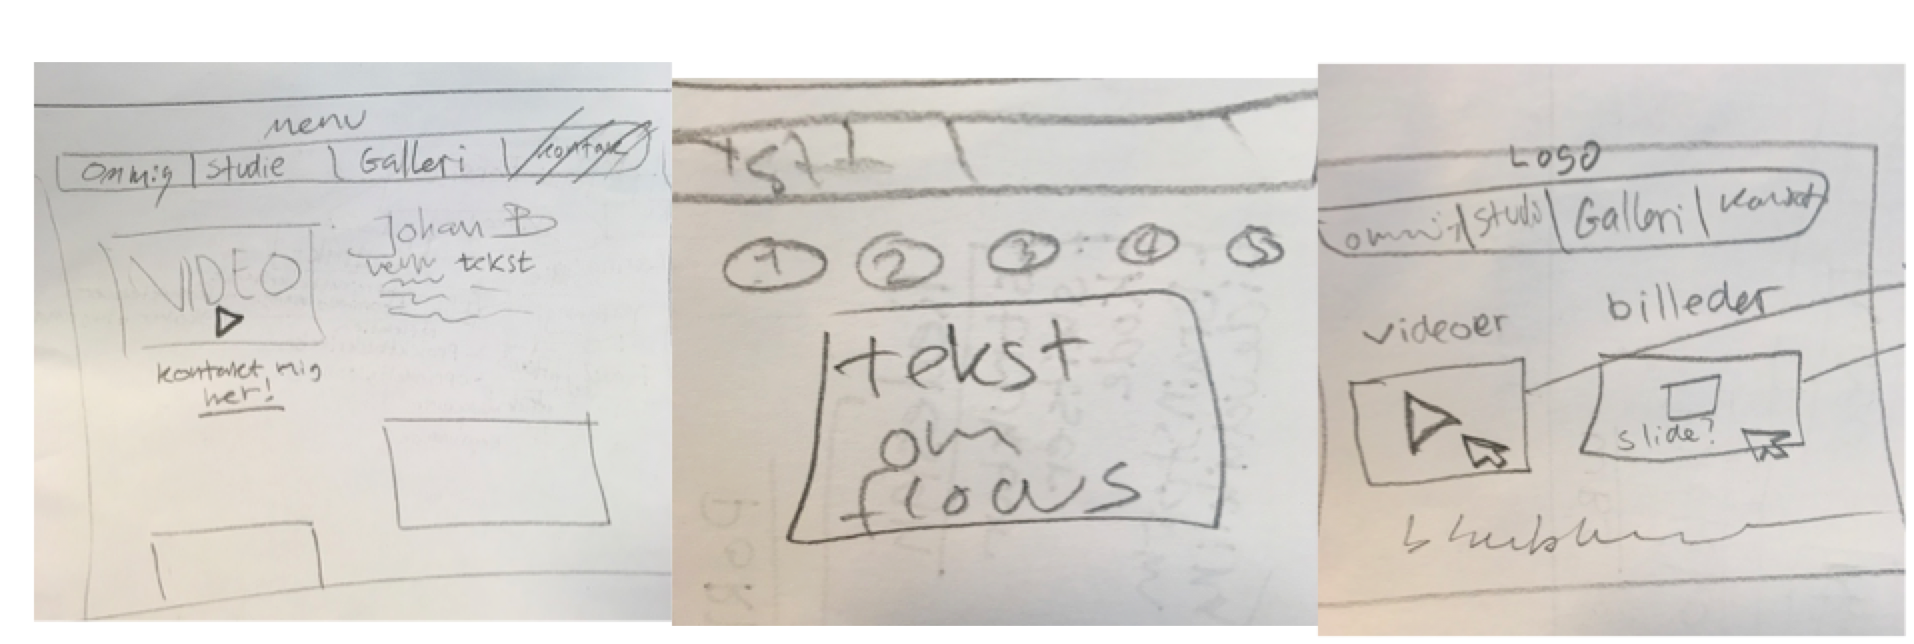 menu
Om mig studie Galleri kontakt
VIDEO
Johan B
tekst
kontakt mig
her!
1 2 3 4 5
tekst
om
flows
LOGO
om mig studie Galleri Kontakt
videoer
billeder
slide?